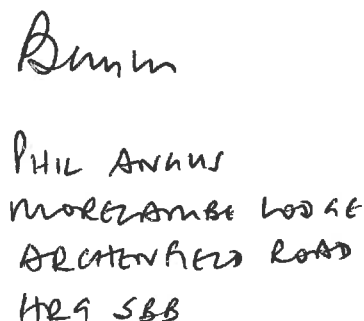 PHIL ANGUS
MORECAMBE LODGE
ARCHENFIELD ROAD
HR9 5BB